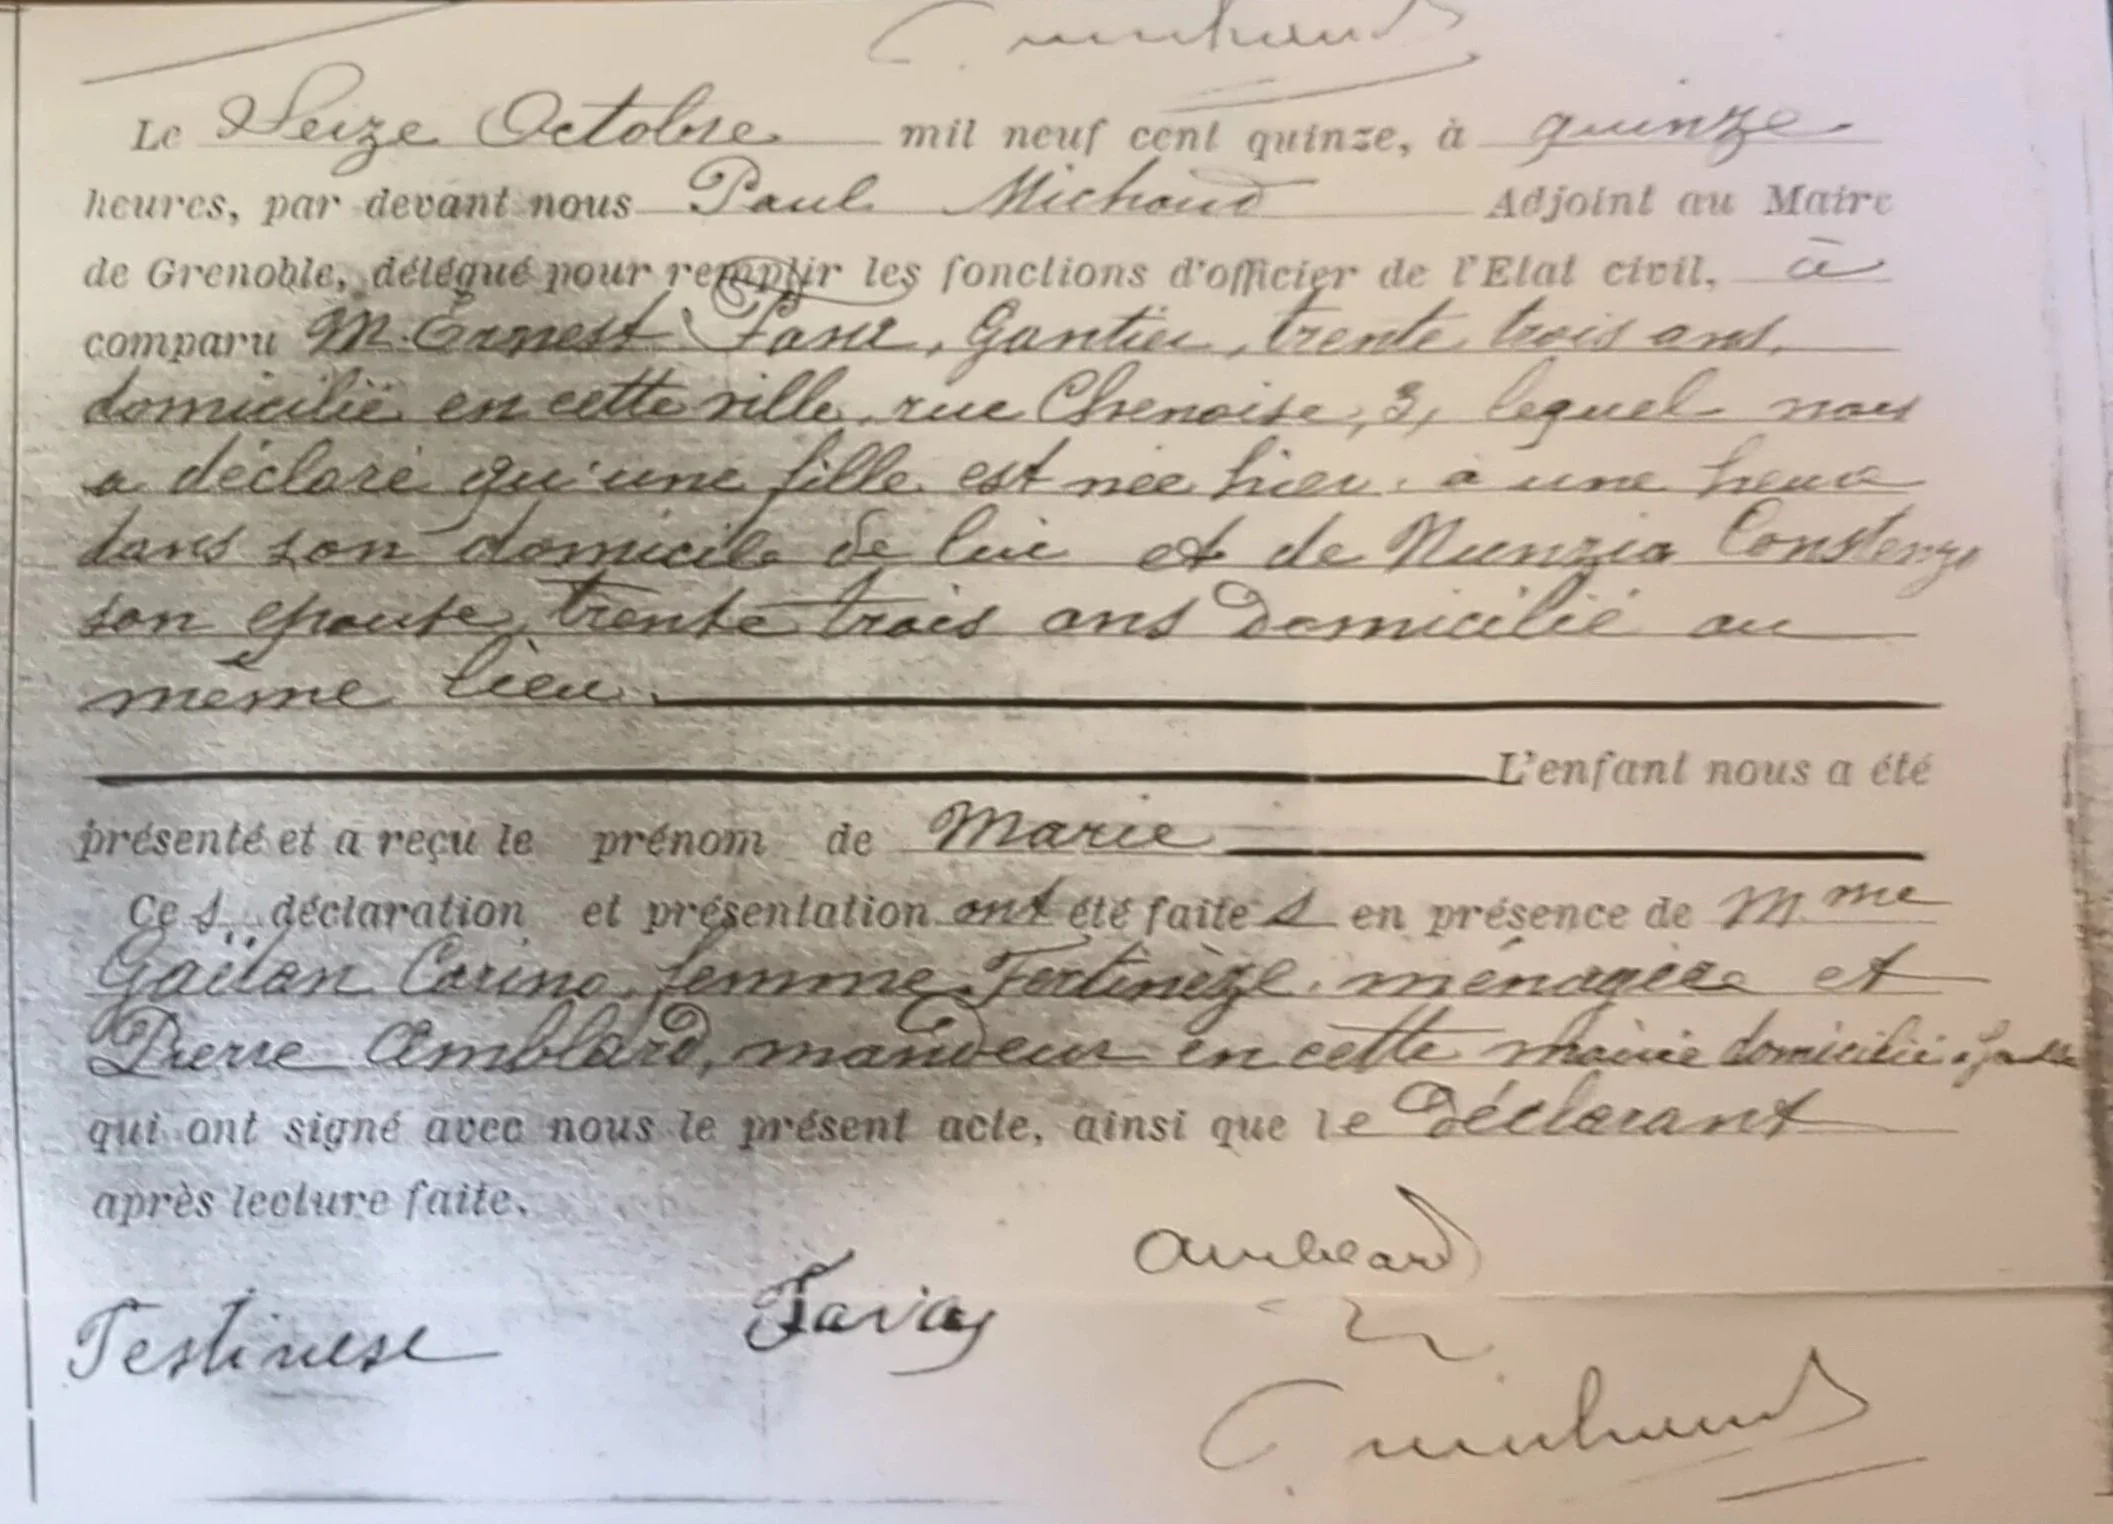 Le Seize Octobre mil neuf cent quinze, à quinze
heures, par devant nous Paul Michoud Adjoint au Maire
de Grenoble, délégué pour remplir les fonctions d'officier de l'Etat civil, à
comparu M. Ernest Gantier, trente trois ans,
domicilié en cette ville, rue Chenoise, 3, lequel nous
a déclaré qu'une fille est née hier à une heure
dans son domicile de lui et de Nunzia Constenzo
son epouse, trente trois ans domicilié au
même lieu.
L'enfant nous a été
présenté et a reçu le prénom de Marie
Ces déclaration et présentation ont été faites en présence de Mme
Gaëtan Carino femme ménagère et
Pierre Amblard, mandeur en cette mairie domicilié
qui ont signé avec nous le présent acte, ainsi que le Déclarant
après lecture faite.
Amblard
Testinese